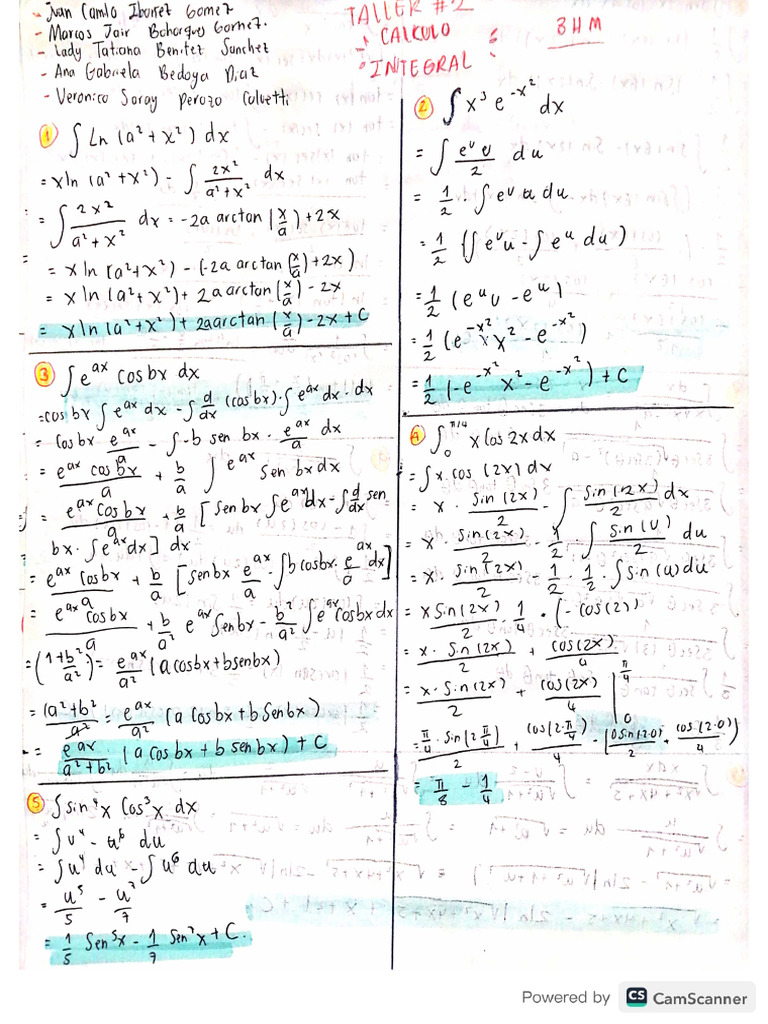 - Juan Camilo Iburet Gomez
- Marcos Jair Bohorquez Gomez.
- Lady Tatiana Benitez Sanchez
- Ana Gabriela Bedoya Diaz
- Veronica Saray Perozo Calvetti
TALLER #2
CALCULO
INTEGRAL
3HM
① ∫ Ln (a² + x²) dx
= xln (a² + x²) - ∫ 2x²/(a² + x²) dx
= ∫ 2x²/(a² + x²) dx = -2a arctan (x/a) + 2x
= x ln (a² + x²) - (-2a arctan (x/a) + 2x)
= x ln (a² + x²) + 2a arctan (x/a) - 2x
= x ln (a² + x²) + 2a arctan (x/a) - 2x + C
② ∫ x³ e^(-x²) dx
= ∫ (e^u u)/2 du
= 1/2 · ∫ e^u u du
= 1/2 (∫ e^u u - ∫ e^u du)
= 1/2 (e^u u - e^u)
= 1/2 (e^(-x²) x² - e^(-x²))
= 1/2 (-e^(-x²) x² - e^(-x²)) + C
③ ∫ e^(ax) cos bx dx
= cos bx ∫ e^(ax) dx - ∫ d/dx (cos bx) · ∫ e^(ax) dx · dx
= cos bx · e^(ax)/a - ∫ -b sen bx · e^(ax)/a dx
= (e^(ax) cos bx)/a + b/a ∫ e^(ax) sen bx dx
= (e^(ax) cos bx)/a + b/a [sen bx ∫ e^(ax) dx - ∫ d/dx sen
bx · ∫ e^(ax) dx] dx
= (e^(ax) cos bx)/a + b/a [sen bx e^(ax)/a - ∫ b cos bx · e^(ax)/a dx]
= (e^(ax) cos bx)/a + b/a² e^(ax) sen bx - b²/a² ∫ e^(ax) cos bx dx
= (1 + b²/a²) = e^(ax)/a² (a cos bx + b sen bx)
= (a² + b²)/a² = e^(ax)/a² (a cos bx + b sen bx)
= e^(ax)/(a² + b²) (a cos bx + b sen bx) + C
④ ∫₀^(π/4) x Cos 2x dx
= ∫ x · cos (2x) dx
= x · Sin (2x)/2 - ∫ Sin (2x)/2 dx
= x · Sin (2x)/2 - 1/2 · ∫ Sin (u)/2 du
= x · Sin (2x)/2 - 1/2 · 1/2 · ∫ Sin (u) du
= x Sin (2x)/2 - 1/4 · (- cos (2))
= x · Sin (2x)/2 + cos (2x)/4
= x · Sin (2x)/2 + cos (2x)/4 |₀^(π/4)
= (π/4 · Sin (2 π/4))/2 + cos (2 · π/4)/4 - (0 Sin (2·0)/2 + cos (2·0)/4)
= π/8 - 1/4
⑤ ∫ sin⁴ x Cos³ x dx
= ∫ u⁴ - u⁶ du
= ∫ u⁴ du - ∫ u⁶ du
= u⁵/5 - u⁷/7
= 1/5 Sen⁵x - 1/7 Sen⁷x + C.
Powered by CS CamScanner